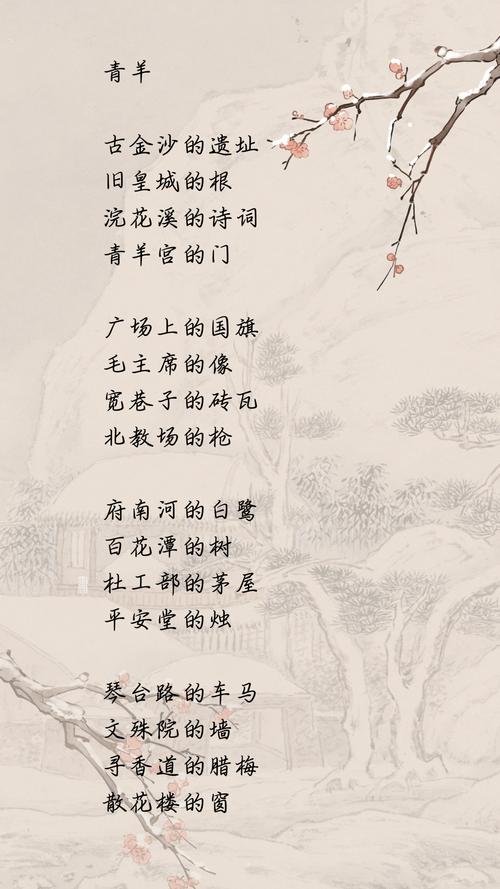 青羊
古金沙的遗址
旧皇城的根
浣花溪的诗词
青羊宫的门
广场上的国旗
毛主席的像
宽巷子的砖瓦
北教场的枪
府南河的白鹭
百花潭的树
杜工部的茅屋
平安堂的烛
琴台路的车马
文殊院的墙
寻香道的腊梅
散花楼的窗